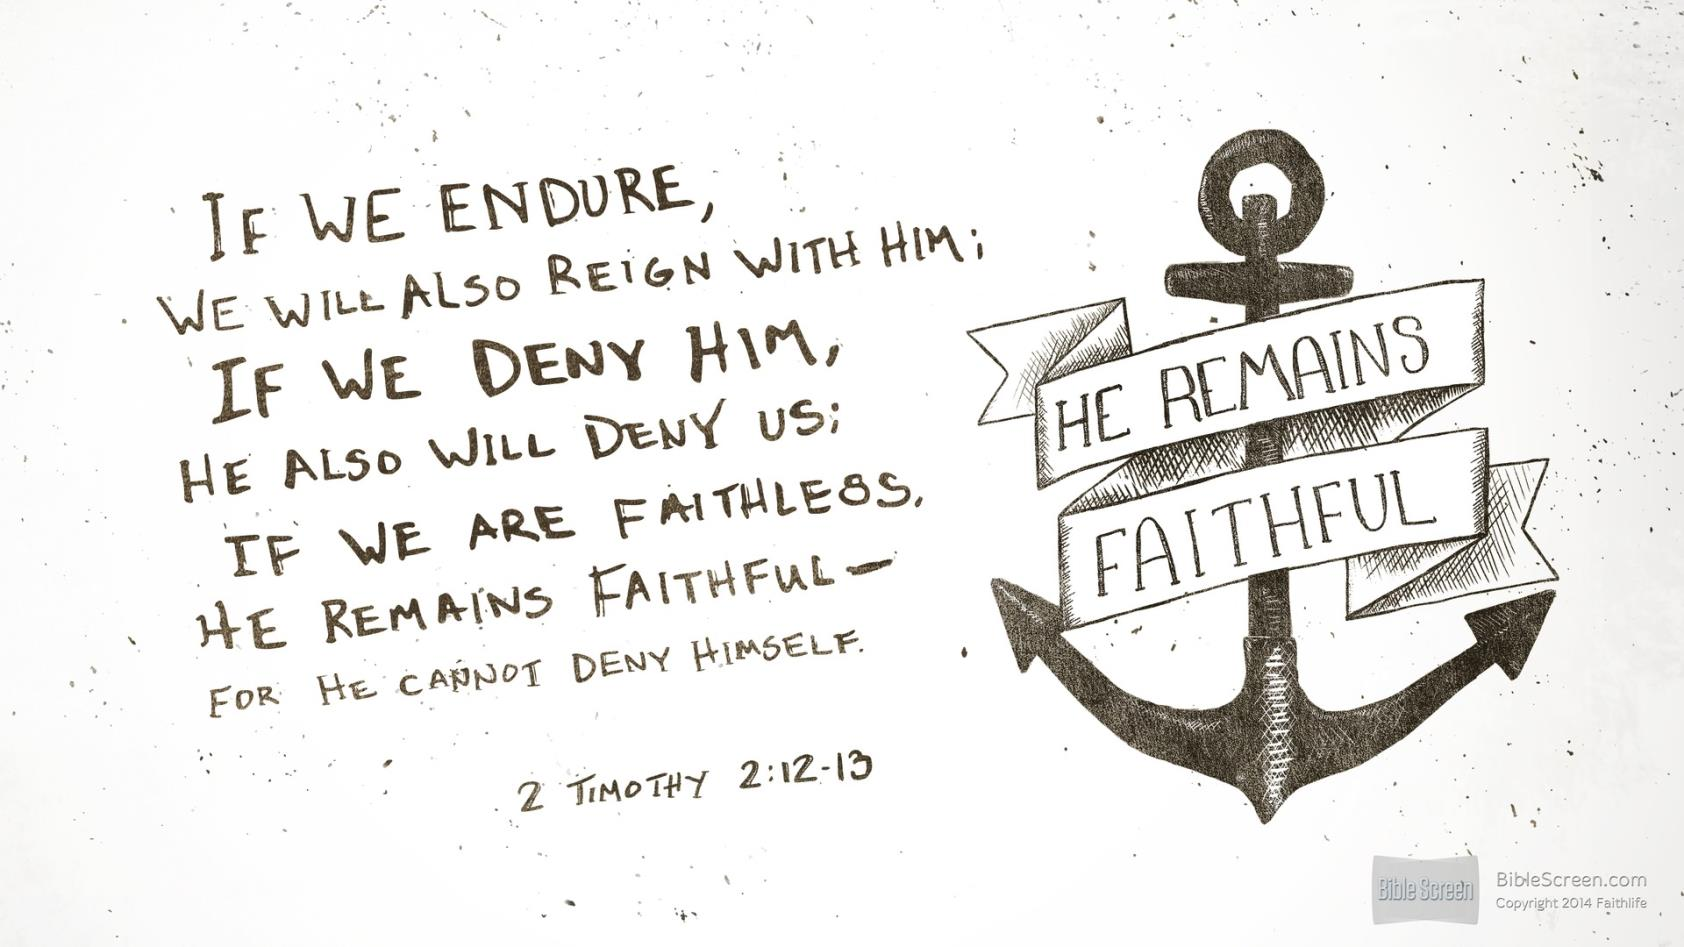 IF WE ENDURE,
WE WILL ALSO REIGN WITH HIM;
IF WE DENY HIM,
HE ALSO WILL DENY US;
IF WE ARE FAITHLESS,
HE REMAINS FAITHFUL—
FOR HE CANNOT DENY HIMSELF.
2 TIMOTHY 2:12-13
HE REMAINS
FAITHFUL
Bible Screen
BibleScreen.com
Copyright 2014 Faithlife